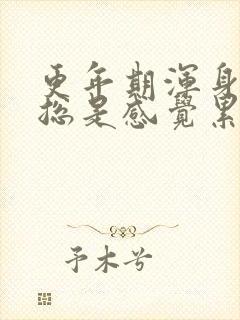 更年期渾身
總是感覺累
予木兮